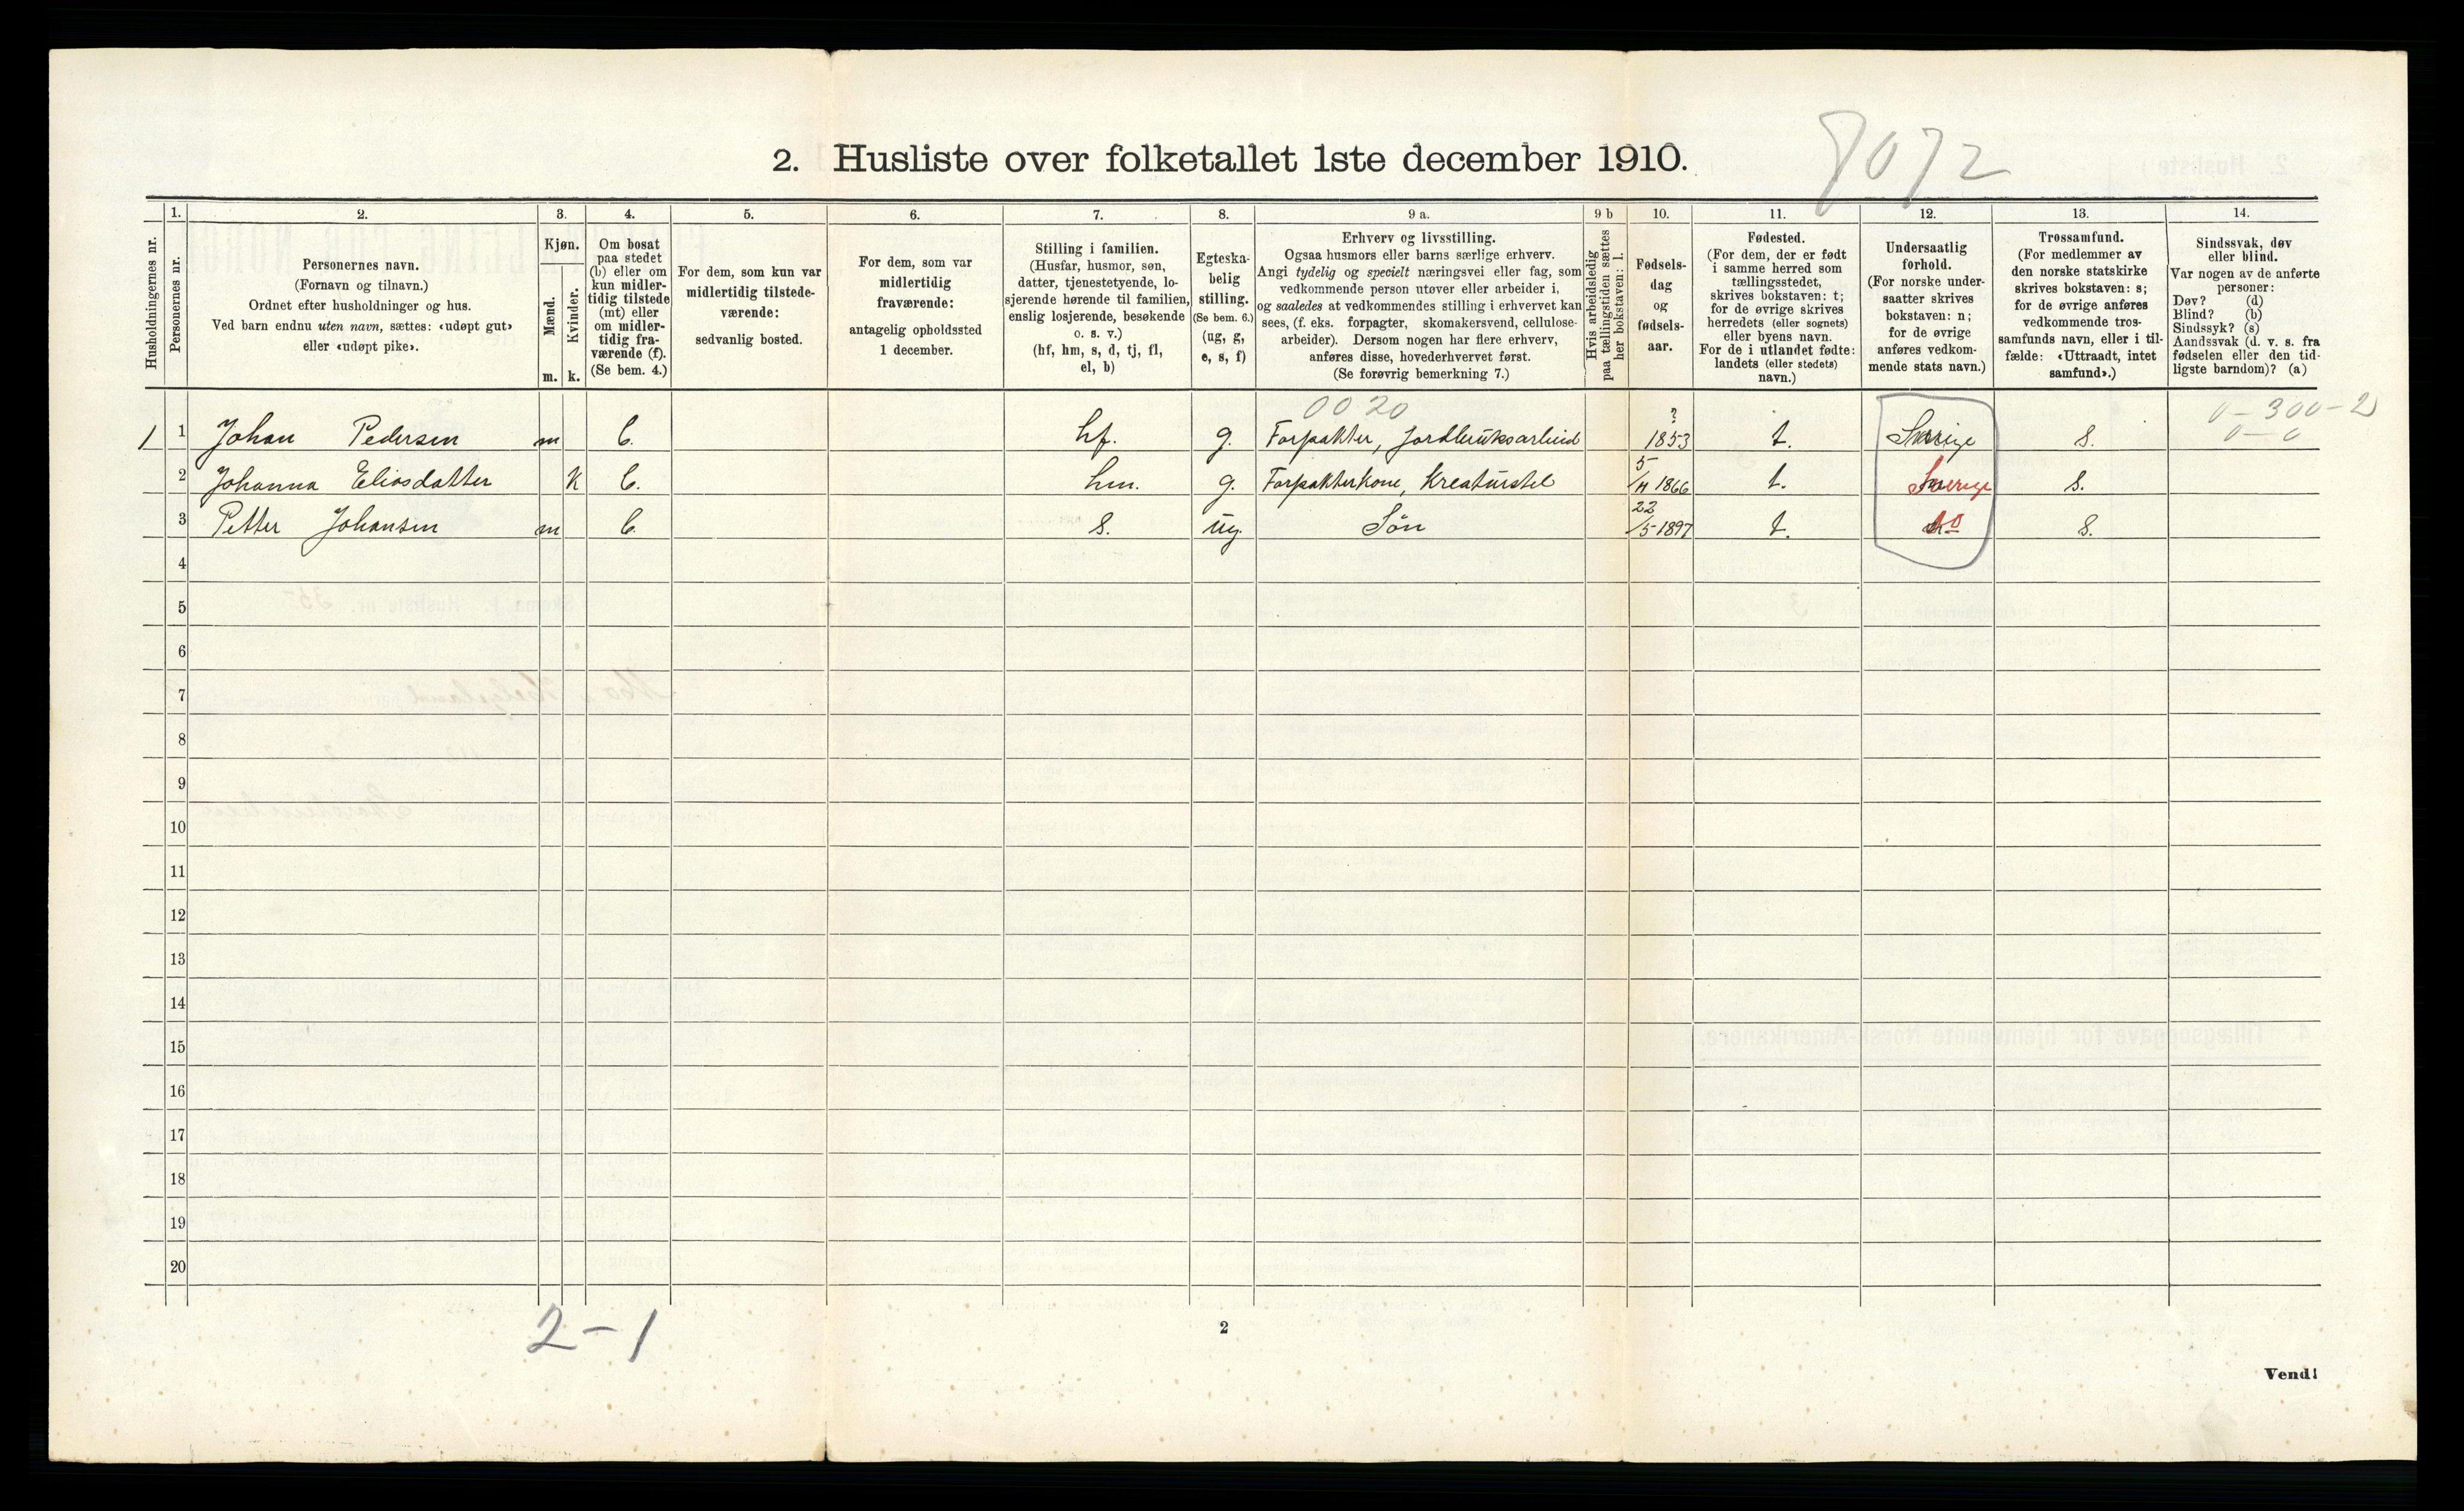 2. Husliste over folketallet 1ste december 1910.
8072
Husholdningernes nr.
1.
Personernes nr.
2.
Personernes navn.
(Fornavn og tilnavn.)
Ordnet efter husholdninger og hus.
Ved barn endnu uten navn, sættes: «udøpt gut»
eller «udøpt pike».
3.
Kjøn.
Mænd.
Kvinder.
m. k.
4.
Om bosat
paa stedet
(b) eller om
kun midler-
tidig tilstede
(mt) eller
om midler-
tidig fra-
værende (f).
(Se bem. 4.)
5.
For dem, som kun var
midlertidig tilstede-
værende:
sedvanlig bosted.
6.
For dem, som var
midlertidig
fraværende:
antagelig opholdssted
1 december.
7.
Stilling i familien.
(Husfar, husmor, søn,
datter, tjenestetyende, lo-
sjerende hørende til familien,
enslig losjerende, besøkende
o. s. v.)
(hf, hm, s, d, tj, fl,
el, b)
8.
Egteska-
belig
stilling.
(Se bem. 6.)
(ug, g,
e, s, f)
9 a.
Erhverv og livsstilling.
Ogsaa husmors eller barns særlige erhverv.
Angi tydelig og specielt næringsvei eller fag, som
vedkommende person utøver eller arbeider i,
og saaledes at vedkommendes stilling i erhvervet kan
sees, (f. eks. forpagter, skomakersvend, cellulose-
arbeider). Dersom nogen har flere erhverv,
anføres disse, hovederhvervet først.
(Se forøvrig bemerkning 7.)
9 b
Hvis arbeidsledig
paa tællingstiden sættes
her bokstaven: l.
10.
Fødsels-
dag
og
fødsels-
aar.
11.
Fødested.
(For dem, der er født
i samme herred som
tællingsstedet,
skrives bokstaven: t;
for de øvrige skrives
herredets (eller sognets)
eller byens navn.
For de i utlandet fødte:
landets (eller stedets)
navn.)
12.
Undersaatlig
forhold.
(For norske under-
saatter skrives
bokstaven: n;
for de øvrige
anføres vedkom-
mende stats navn.)
13.
Trossamfund.
(For medlemmer av
den norske statskirke
skrives bokstaven: s;
for de øvrige anføres
vedkommende tros-
samfunds navn, eller i til-
fælde: «Uttraadt, intet
samfund».)
14.
Sindssvak, døv
eller blind.
Var nogen av de anførte
personer:
Døv? (d)
Blind? (b)
Sindssyk? (s)
Aandssvak (d. v. s. fra
fødselen eller den tid-
ligste barndom)? (a)
0020 ? 0-300-2
1 1 Johan Pedersen m b. hf. g. Forpakter, Jordbruksarbeid 1853 t. Sverige S. 0-0
2 Johanna Eliasdatter K b. hm. g. Forpakterkone, Kreaturstel 5/11 1866 t. Sverige S.
3 Petter Johansen m b. S. ug. Sön 22/5 1897 t. do S.
4
5
6
7
8
9
10
11
12
13
14
15
16
17
18
19
20
2-1
2
Vend!